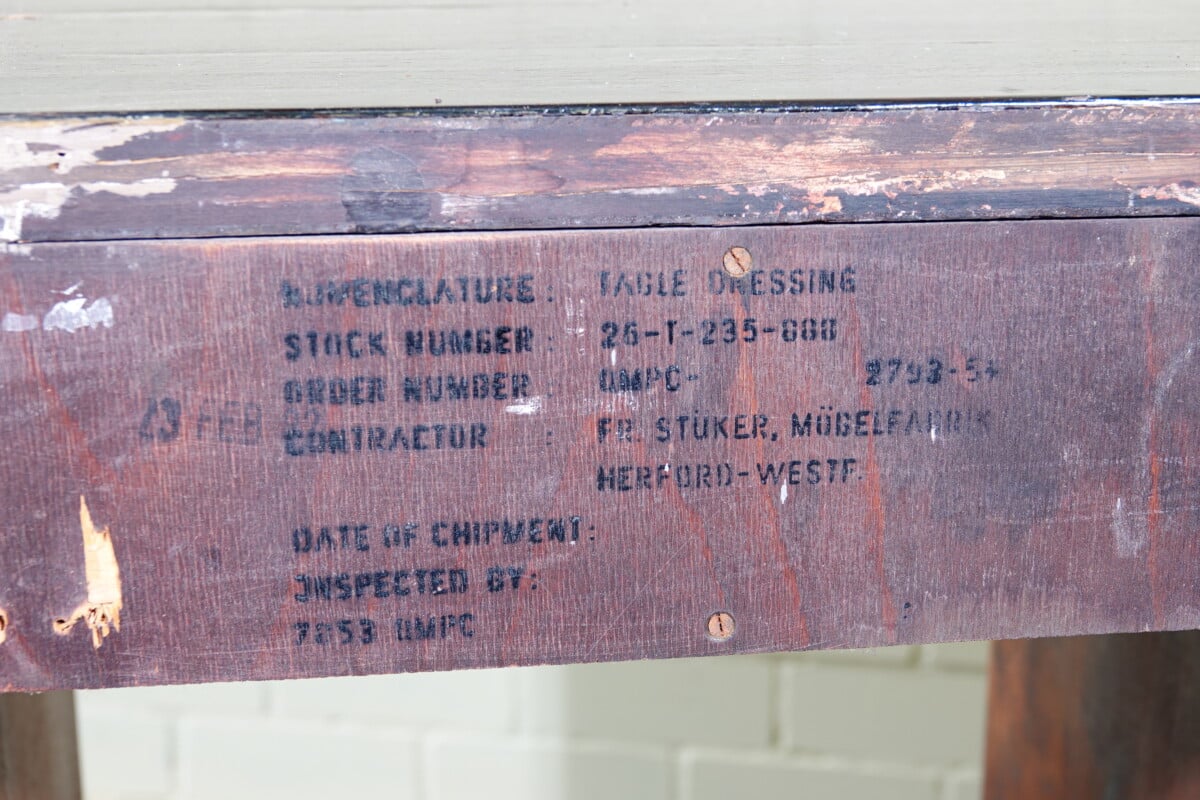 NOMENCLATURE: TABLE DRESSING
STOCK NUMBER: 26-T-235-000
ORDER NUMBER QMPC- 2793-54
13 FEB
CONTRACTOR : FR. STÜKER, MÖBELFABRIK
HERFORD-WESTF.
DATE OF CHIPMENT:
INSPECTED BY:
7853 QMPC